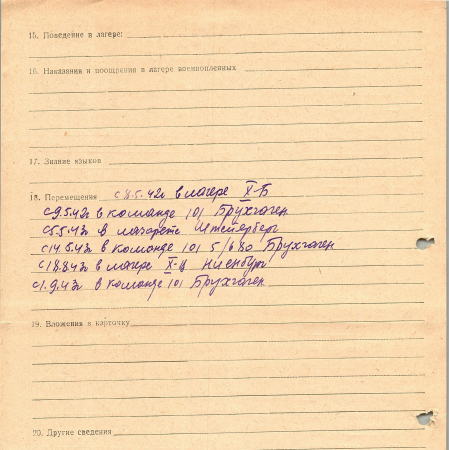 15. Поведение в лагере:
16. Наказания и поощрения в лагере военнопленных
17. Знание языков
18. Перемещения с 8.5.42г в лагере X-Б
с 9.5.42г в команде 101 Брухгаген
в лазарете
с 14.5.43г в команде 101 5/680 Брухгаген
в лагере X-Ц Ниенбург
с 1.9.43г в команде 101 Брухгаген
19. Вложения в карточку
20. Другие сведения